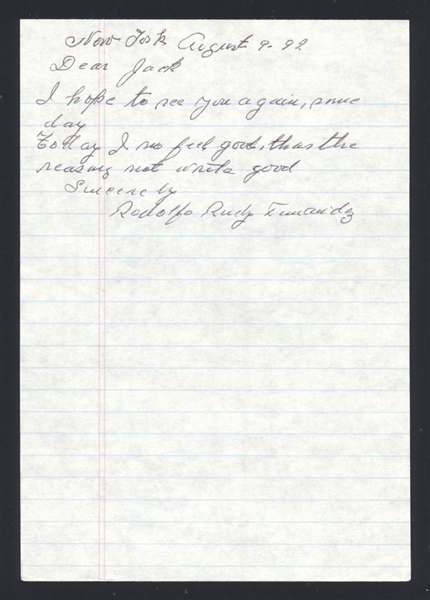 New York August 9-92
Dear Jack
I hope to see you again, some
day
Today I no feel good, thas the
reasong not write good
Sincerely
Rodolfo Rudy Fernandez